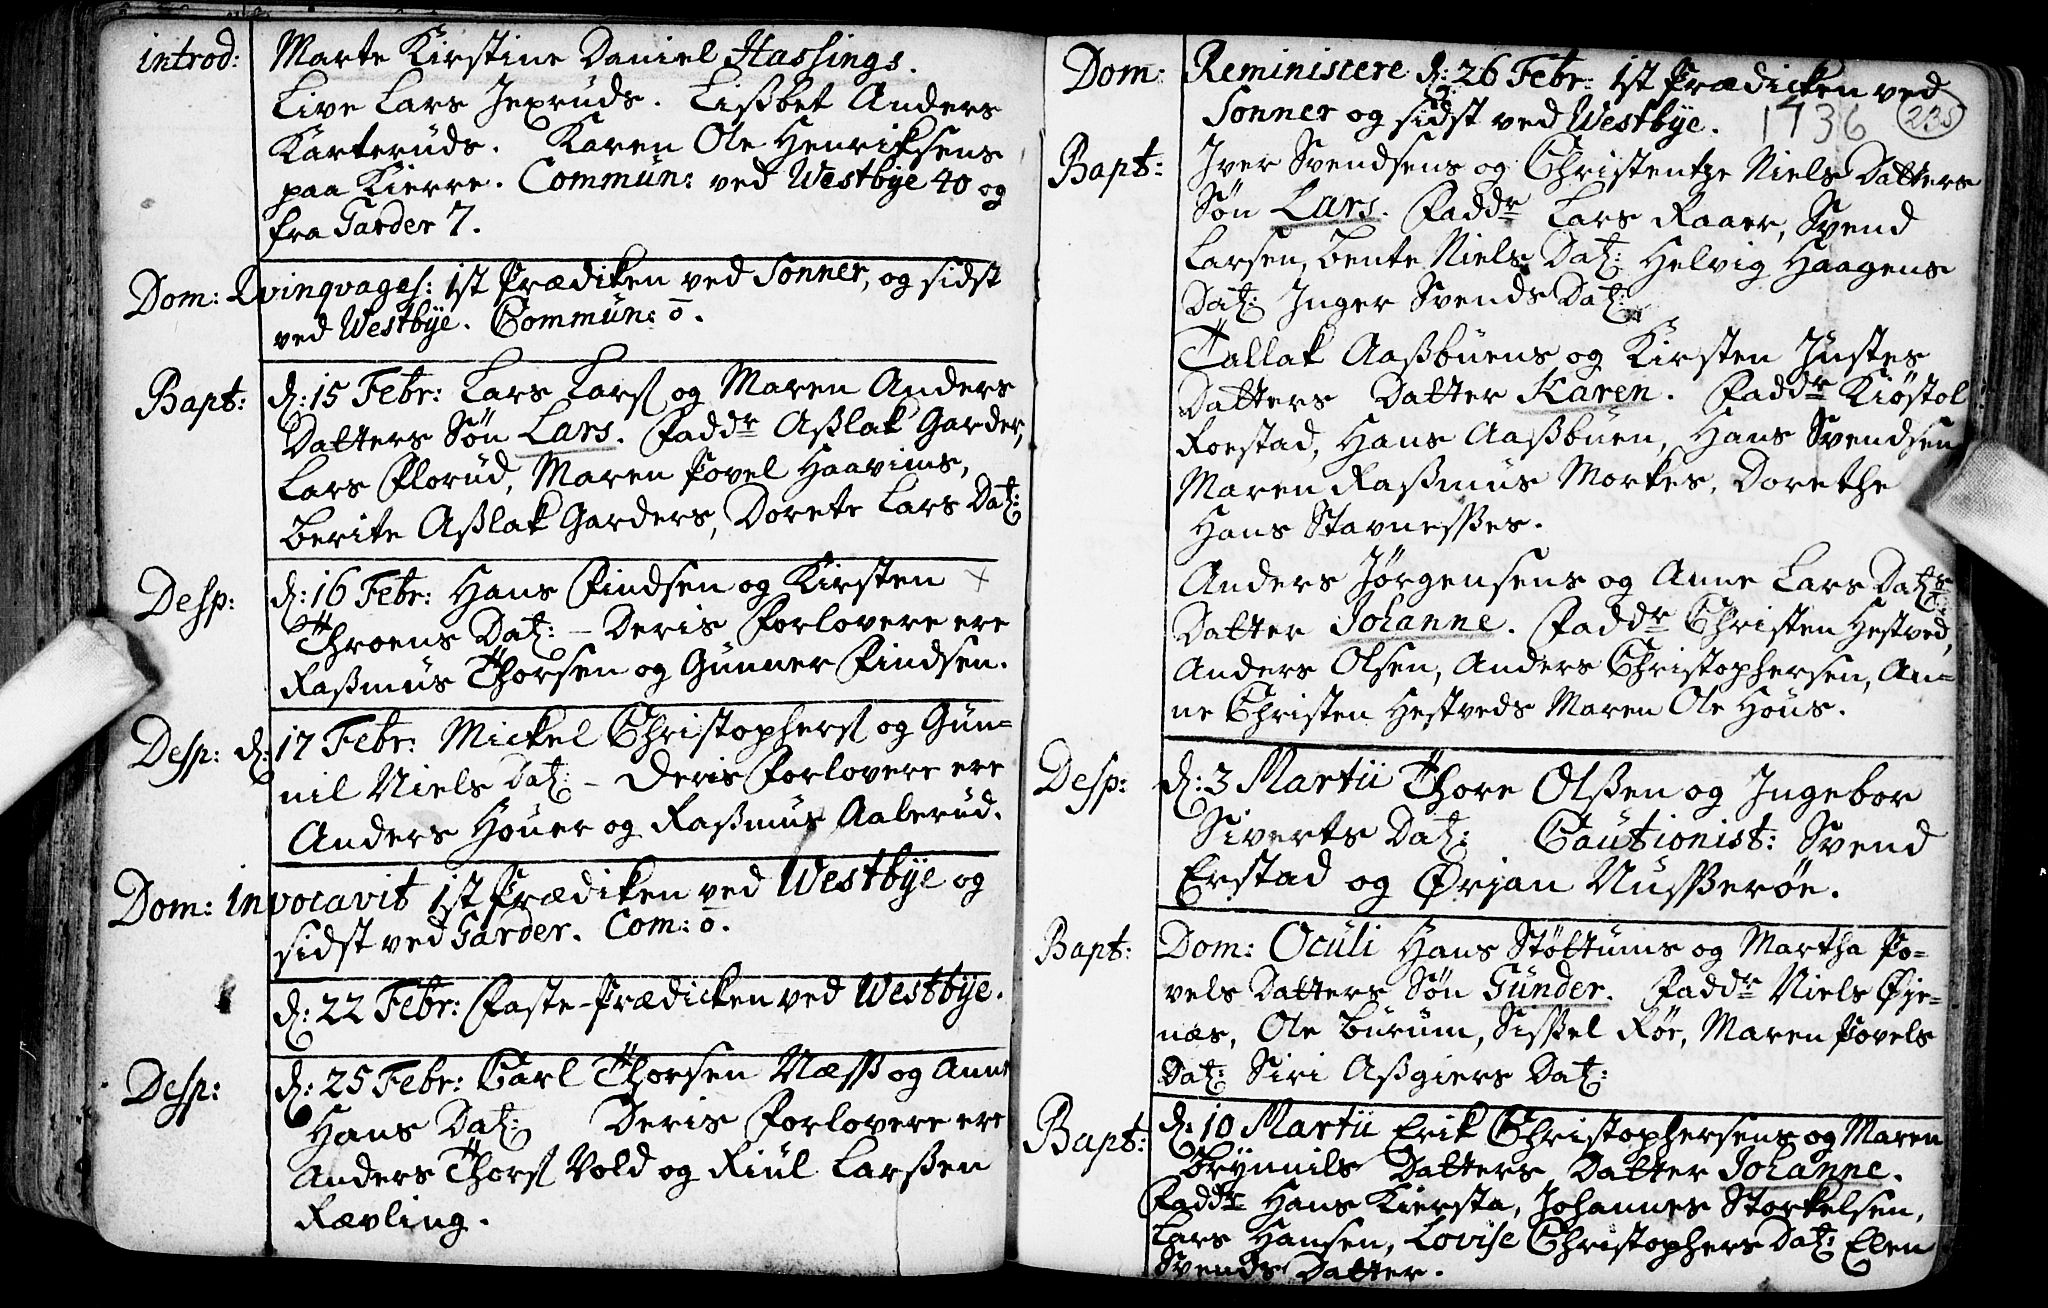 introd: Marte Kirstine Daniel Hassings.
Live Lars Jexruds. Lisßbet Anders
Karteruds. Karen Ole Henriksens
paa Kierre. Commun: ved Westbÿe 40 og
fra Garder 7.
Dom: Qvinqvages: 1st Prædiken ved Sonner, og sidst
ved Westbÿe. Commun: o.
Bapt: d: 15 Febr: Lars Lars og Maren Anders
Datters Søn Lars. Faddr Aßlak Garder,
Lars Florud, Maren Povel Haavims,
Berite Aßlak Garders, Dorete Lars Dat:
Desp: d: 16 Febr: Hans Findsen og Kirsten
Throens Dat: - Deris Forlovere ere
Raßmus Thorsen og Gunner Findsen.
Desp: d: 17 Febr: Mickel Christophers og Gun=
nil Niels Dat: - Deris Forlovere ere
Anders Houer og Raßmus Aalerud.
Dom: invocavit 1st Prædiken ved Westbÿe og
sidst ved Garder. Com: o.
d: 22 Febr: Faste-Prædicken ved Westbÿe.
Desp: d: 25 Febr: Carl Thorsen Næss og Anne
Hans Dat: Deris Forlovere ere
Anders Thors Vold og Kiul Larßen
Rævling.
Dom: Reministere d: 26 Febr: 1st Prædicken ved
Sonner og sidst ved Westbÿe. 1736 235
Bapt: Iver Svendsens og Christentze Niels Datters
Søn Lars. Faddr Lars Raaer, Svend
Larsen, Bente Niels Dat: Helvig Haagens
Dat: Inger Svends Dat:
Tallak Aaßbuens og Kirsten Justes
Datters Datter Karen. Faddr Kiøstol
Roestad, Hans Aaßbuen, Hans Svendsen
Maren Raßmus Morkes, Dorethe
Hans Stavnesßes.
Anders Jørgensens og Anne Lars Datrs
Datter Johanne. Faddr Christen Hestved,
Anders Olsen, Anders Christophersen, An=
ne Christen Hestveds Maren Ole Hous.
Desp: d: 3 Martii Thore Olßen og Ingebor
Siverts Dat: Cautionist: Svend
Erstad og Ørjan Nusßerøe.
Bapt: Dom: Oculi Hans Støttums og Martha Po=
vels Datters Søn Gunder. Faddr Niels Øje=
næs, Ole Burum, Sisßel Røe, Maren Povels
Dat: Siri Aßgiers Dat:
Bapt: d: 10 Martii Erik Christophersens og Maren
Brÿnnils Datters Datter Johanne.
Faddr Hans Kiersta, Johannes Storkelsen,
Lars Hansen, Lovise Christophers Dat: Elen
Svends Datter.